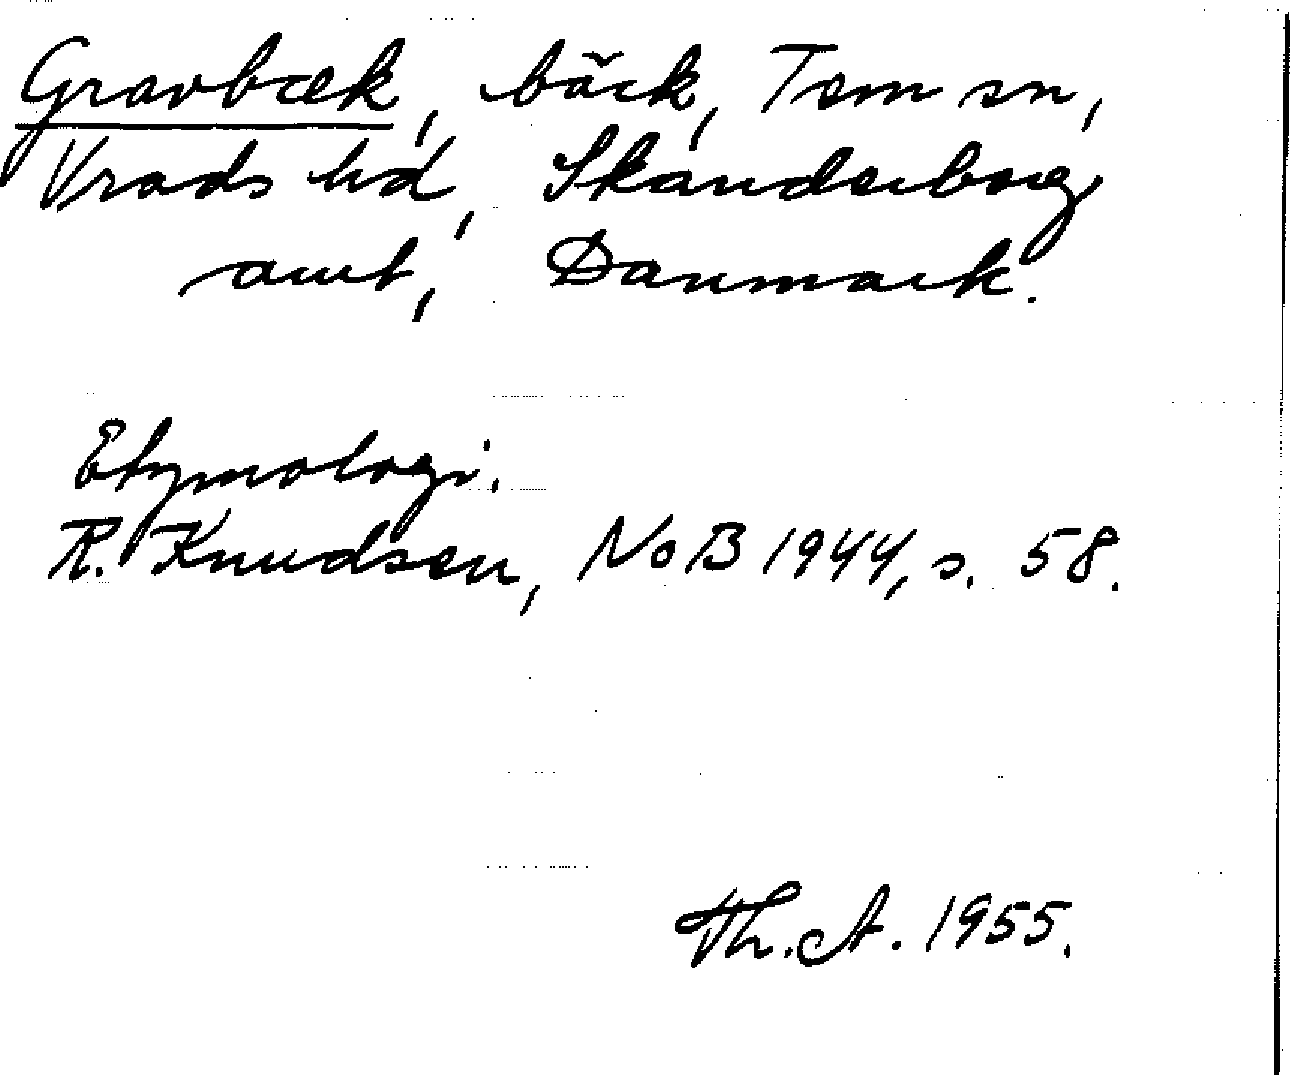 Gravbæk, bäck, Tem sn,
Vrads hd, Skanderborg
amt, Danmark.
Etymologi.
R. Knudsen, NoB 1944, s. 58.
Th. A. 1955.